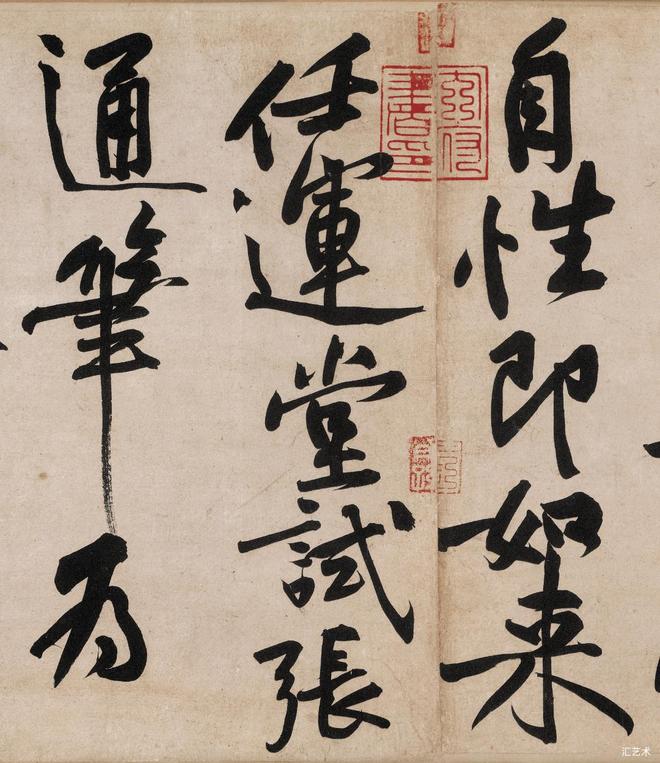 自性即如来
任運堂試張
通筆為
汇艺术